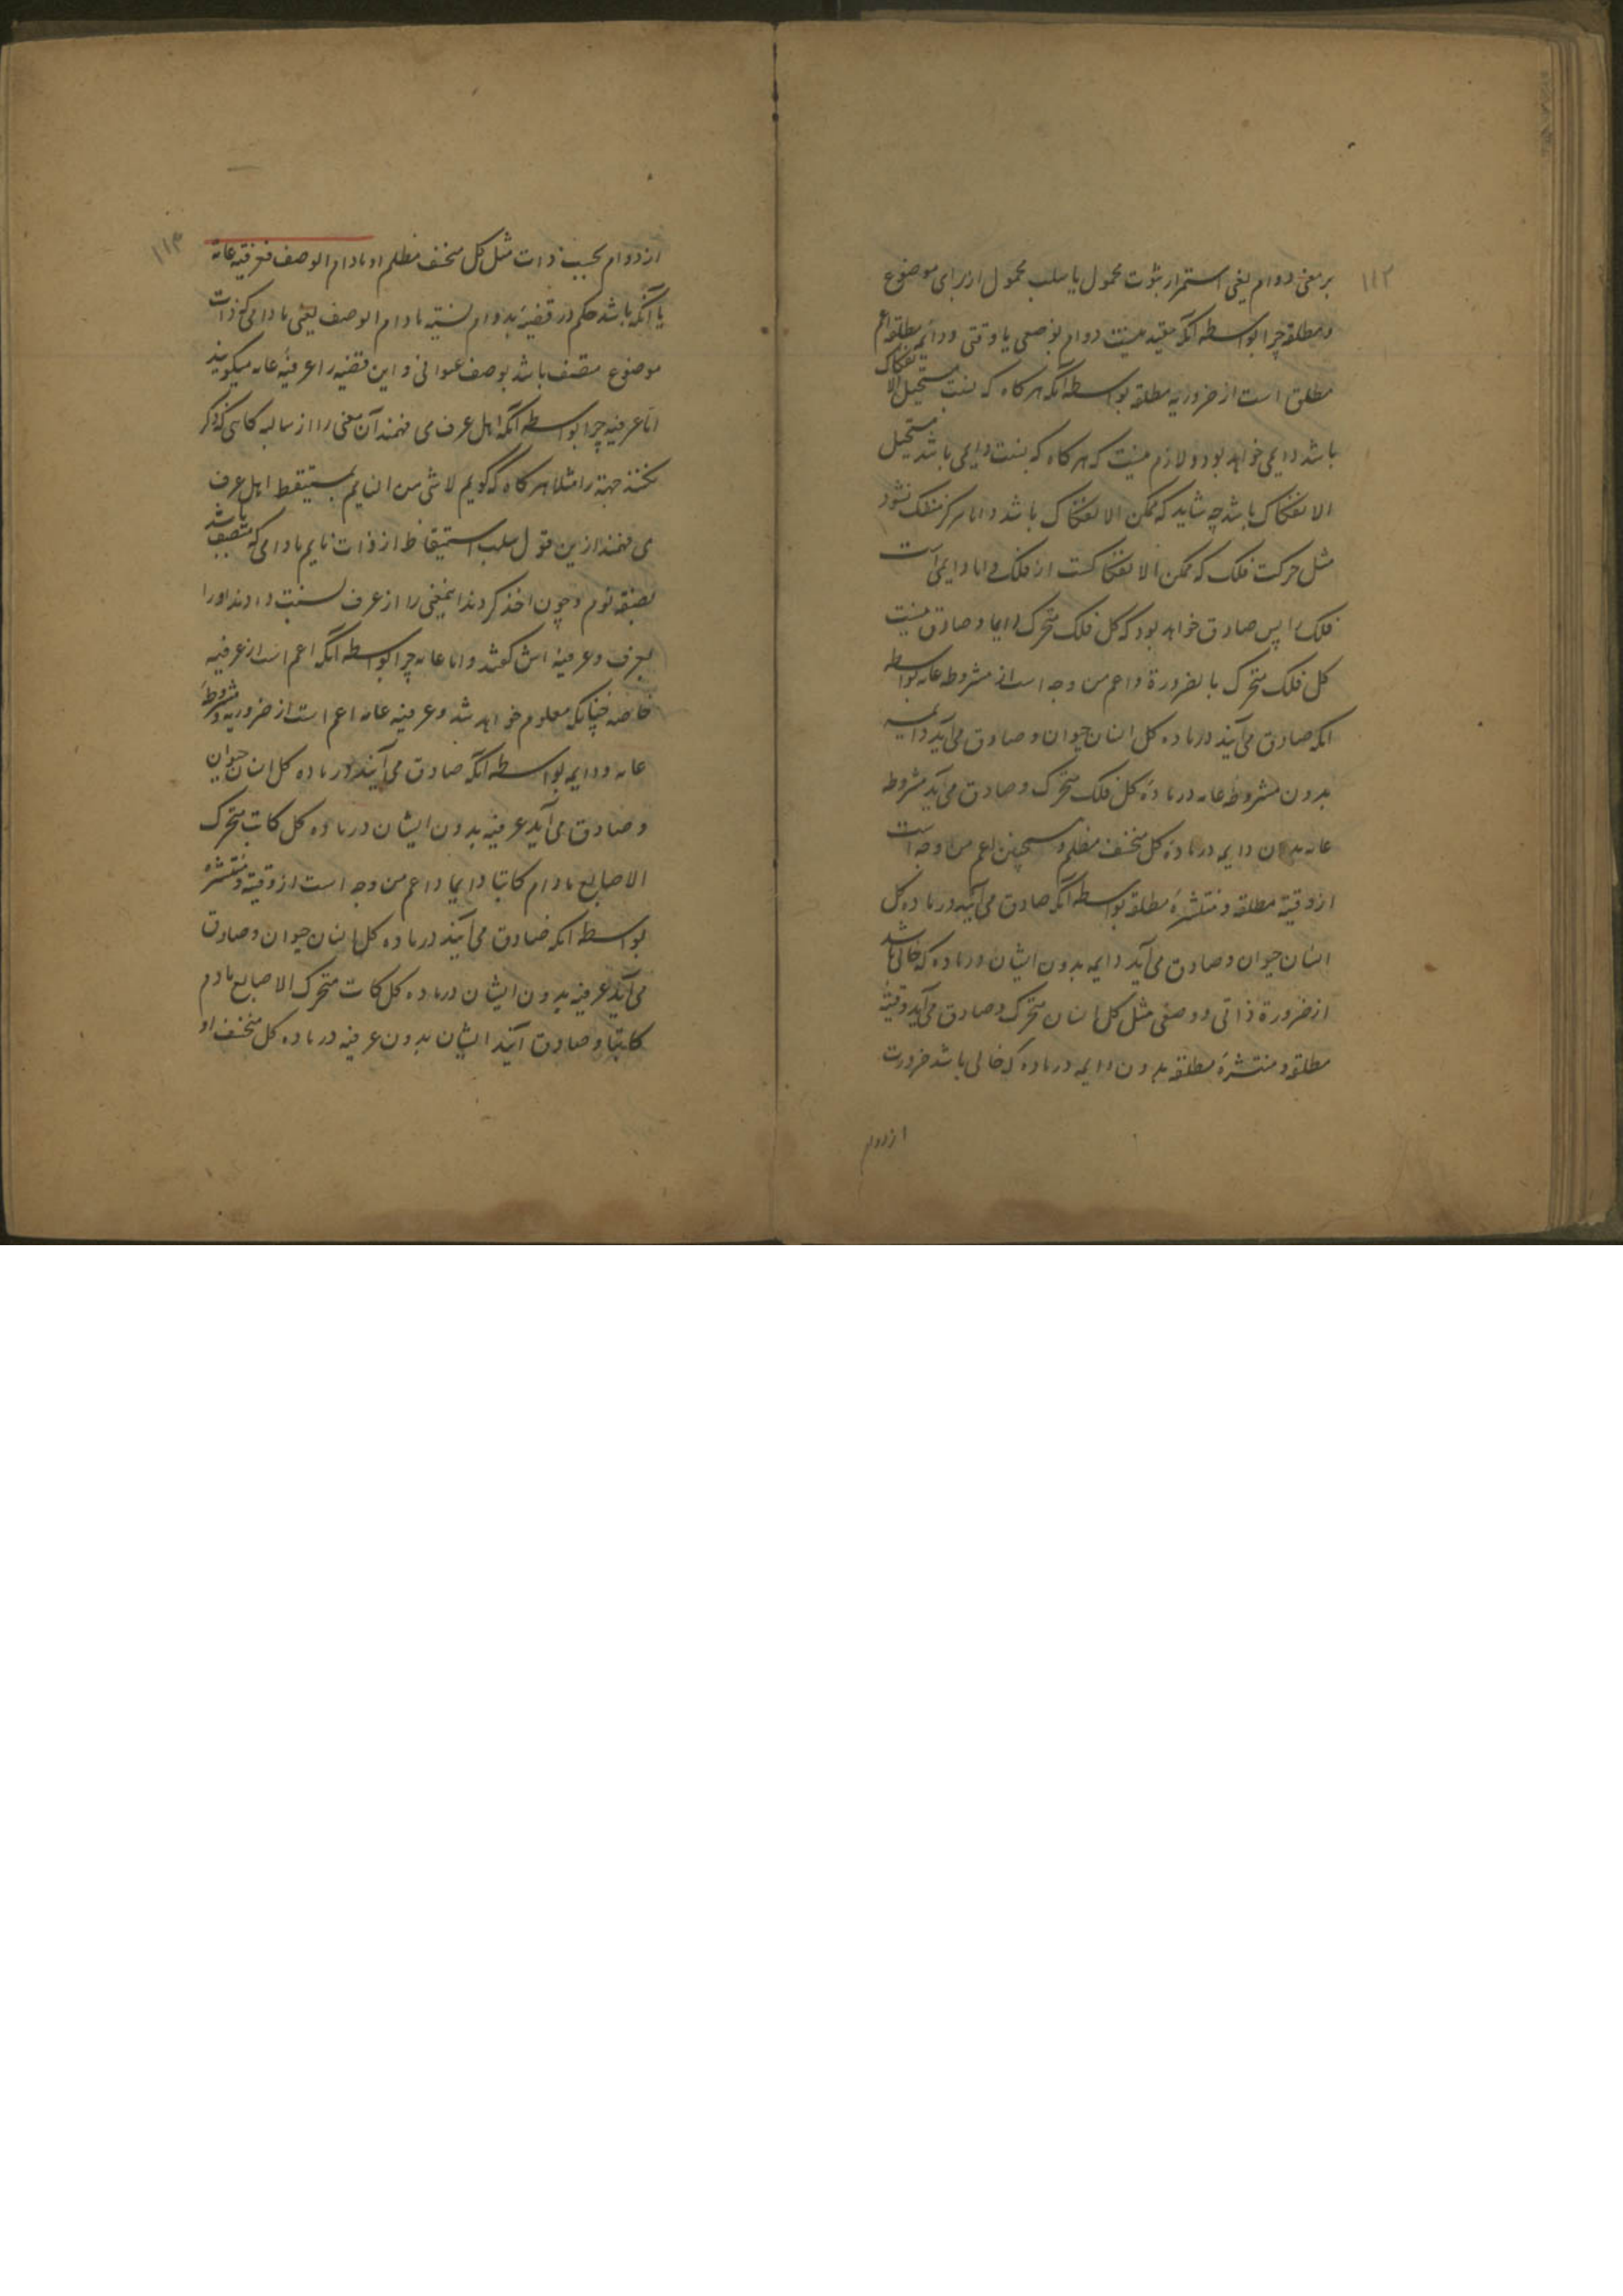 ۱۱۲
بر معنی دوام یعنی استمرار ثبوت محمول یا سلب محمول از برای موضوع
و مطلقه چرا بواسطه آنکه مقید نیست دوام بوصفی یا وقتی و دائمه مطلقه اعم
مطلق است از ضروریه مطلقه بواسطه آنکه هر کاه که نسبت مستحیل الانفکاک
باشد دایمی خواهد بود و لازم نیست که هر کاه که نسبت دایمی باشد مستحیل
الانفکاک باشد چه شاید که ممکن الانفکاک باشد و اما هرکز منفک نشود
مثل حرکت فلک که ممکن الانفکاکست از فلک و اما دایمی است
فلک را پس صادق خواهد بود که کل فلک متحرک دایما و صادق نیست
کل فلک متحرک بالضرورة و اعم من وجه است از مشروطه عامه بواسطه
انکه صادق می آیند در ماده کل انسان حیوان و صادق می آید دایمه
بدون مشروطه عامه در ماده کل فلک متحرک و صادق می آید مشروطه
عامه بدون دایمه در ماده کل منخسف مظلم و همچنین اعم من وجه است
از وقتیه مطلقه و منتشرهٔ مطلقه بواسطه آنکه صادق می آیند در ماده کل
انسان حیوان و صادق می آید دایمه بدون ایشان در ماده که خالی باشد
از ضرورة ذاتی و وصفی مثل کل انسان متحرک و صادق می آید وقتیه
مطلقه و منتشرهٔ مطلقه بدون دایمه در ماده که خالی باشد ضرورت
از دوام
۱۱۳
از دوام بحسب ذات مثل کل منخسف مظلم او مادام الوصف فعرفیه عامه
یا آنکه باشد حکم در قضیه بدوام نسبته مادام الوصف یعنی مادامی که ذات
موضوع متصف باشد بوصف عنوانی و این قضیه را عرفیهٔ عامه میکویند
اما عرفیه چرا بواسطه آنکه اهل عرف می فهمند آن معنی را از سالبه کاهی که ذکر
نکنند جهة را مثلا هر کاه که کویم لا شی من النایم بمستیقظ اهل عرف
می فهمند ازین قول سلب استیقاظ از ذات نایم مادامی که متصف باشد
بصفة نوم و چون اخذ کردند اینمعنی را از عرف نسبت دادند او را
بعرف و عرفیه اش کفتند و اما عامه چرا بواسطه آنکه اعم است از عرفیه
خاصه چنانکه معلوم خواهد شد و عرفیه عامه اعم است از ضروریه و مشروطه
عامه و دایمه بواسطه آنکه صادق می آیند در ماده کل انسان حیوان
و صادق می آید عرفیه بدون ایشان در ماده کل کاتب متحرک
الاصابع مادام کاتبا دایما و اعم من وجه است از وقتیه و منتشره
بواسطه انکه صادق می آیند در ماده کل انسان حیوان و صادق
می آید عرفیه بدون ایشان در ماده کل کاتب متحرک الاصابع مادام
کاتبا و صادق آیند ایشان بدون عرفیه در ماده کل منخسف او